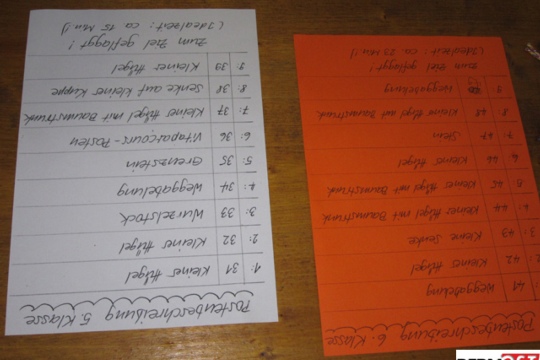 Postenbeschreibung 5. Klasse
1: 31 Kleiner Hügel
2: 32 Kleiner Hügel
3: 33 Wurzelstock
4: 34 Weggabelung
5: 35 Grenzstein
6: 36 Vitaparcours-Posten
7: 37 Kleiner Hügel mit Baumstrunk
8: 38 Senke auf kleiner Kuppe
9: 39 Kleiner Hügel
Zum Ziel geflaggt!
(Idealzeit: ca. 15 Min!)
Postenbeschreibung 6. Klasse
41 Weggabelung
2: 42 Kleiner Hügel
3: 43 Kleine Senke
4: 44 Kleiner Hügel mit Baumstrunk
5: 45 Kleiner Hügel mit Baumstrunk
6: 46 Kleiner Hügel
7: 47 Stein
8: 48 Kleiner Hügel mit Baumstrunk
9: Weggabelung
Zum Ziel geflaggt!
(Idealzeit: ca. Min!)